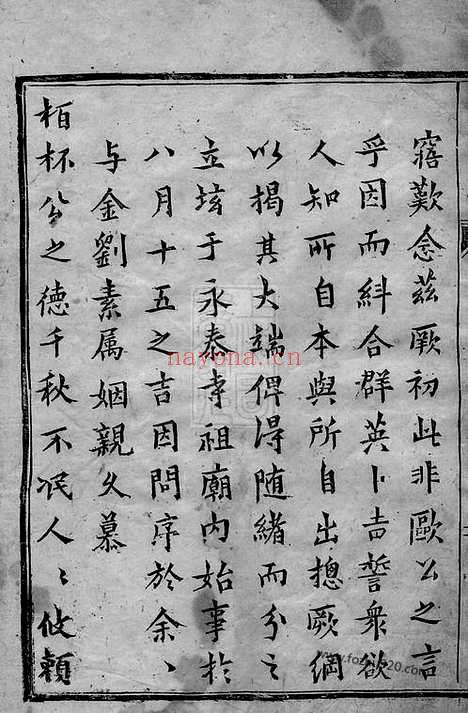 寤歎念茲厥初此非歐公之言
乎因而糾合群英卜吉誓衆欲
人知所自本與所自出摠厥綱
以揭其大端俾得随緒而分之
立垓于永泰寺祖廟内始事於
八月十五之吉因問序於余〻
与金劉素属姻親久慕
栢杯公之德千秋不泯人〻攸賴
nayona.cn
www.fozhu920.com